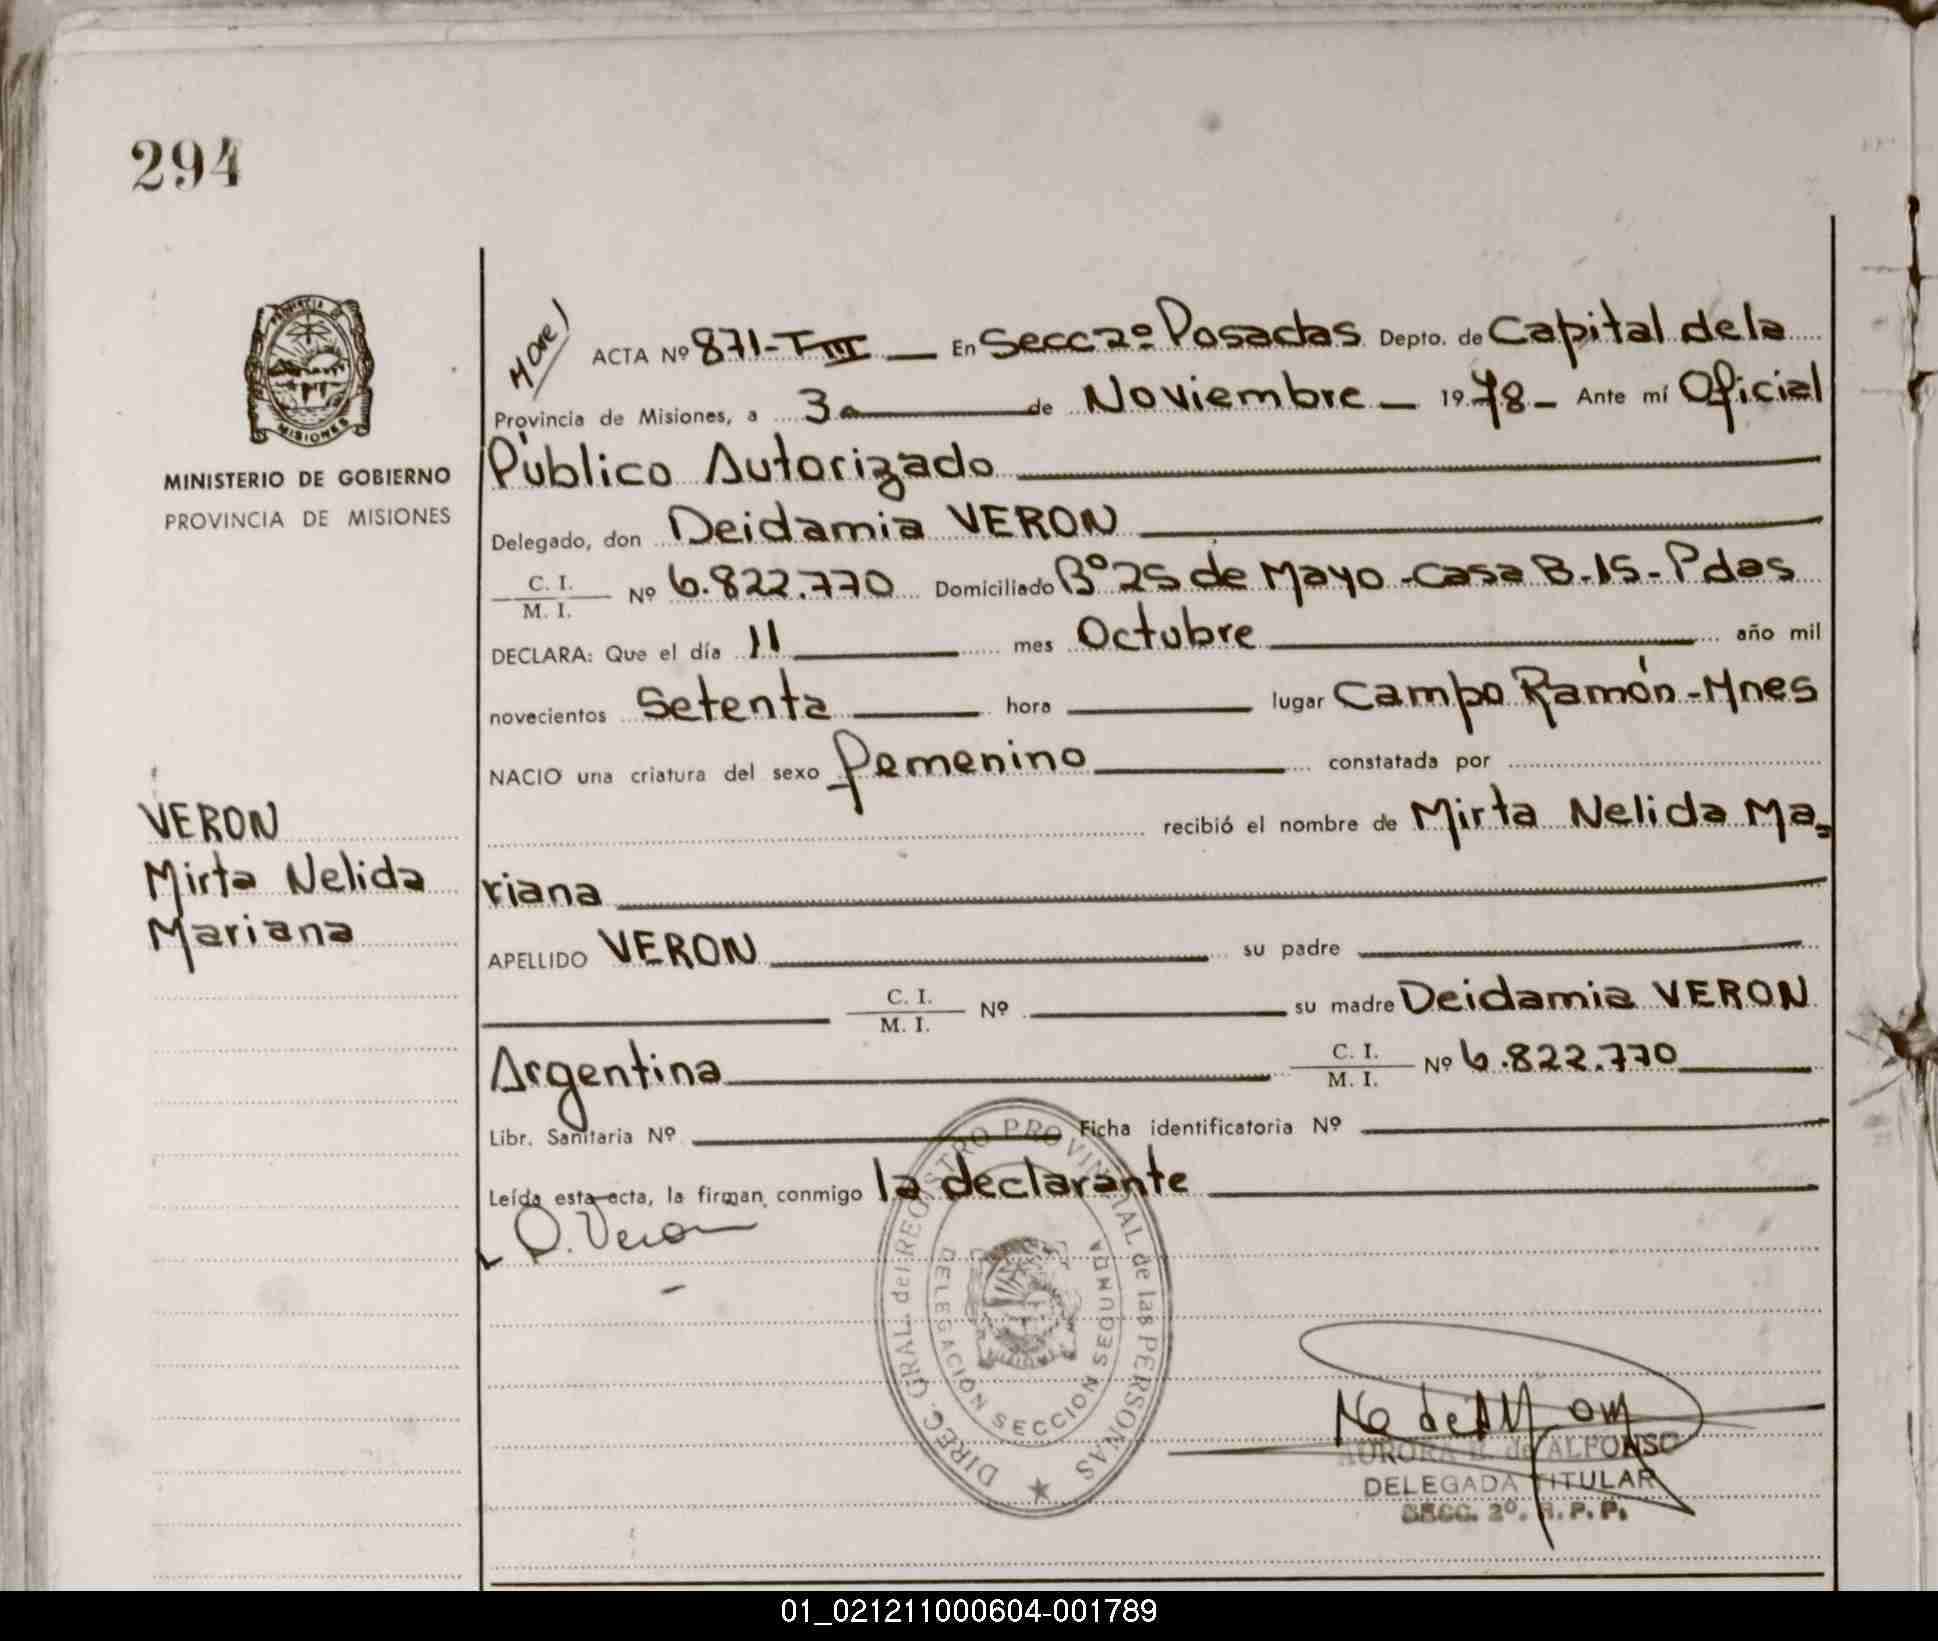 294
ACTA Nº 871-T III — En Secc 2º Posadas Depto. de Capital de la
Provincia de Misiones, a 3 de Noviembre — 1978 — Ante mí Oficial
Público Autorizado
Delegado, don Deidamia VERON
C. I.
M. I. Nº 6.822.770 Domiciliado Bº 25 de Mayo - Casa B-15 - Pdas
DECLARA: Que el día 11 mes Octubre año mil
novecientos Setenta hora lugar Campo Ramón - Mnes
NACIO una criatura del sexo femenino constatada por
recibió el nombre de Mirta Nelida Ma-
riana
APELLIDO VERON su padre
C. I.
M. I. Nº su madre Deidamia VERON
Argentina C. I.
M. I. Nº 6.822.770
Libr. Sanitaria Nº Ficha identificatoria Nº
Leída esta acta, la firman conmigo la declarante
D. Veron
PROVINCIA DE
MISIONES
MINISTERIO DE GOBIERNO
PROVINCIA DE MISIONES
VERON
Mirta Nelida
Mariana
DIREC. GRAL. del REGISTRO PROVINCIAL de las PERSONAS
DELEGACION SECCION SEGUNDA
AURORA de ALFONSO
DELEGADA TITULAR
SECC. 2º. R. P. P.
01_021211000604-001789